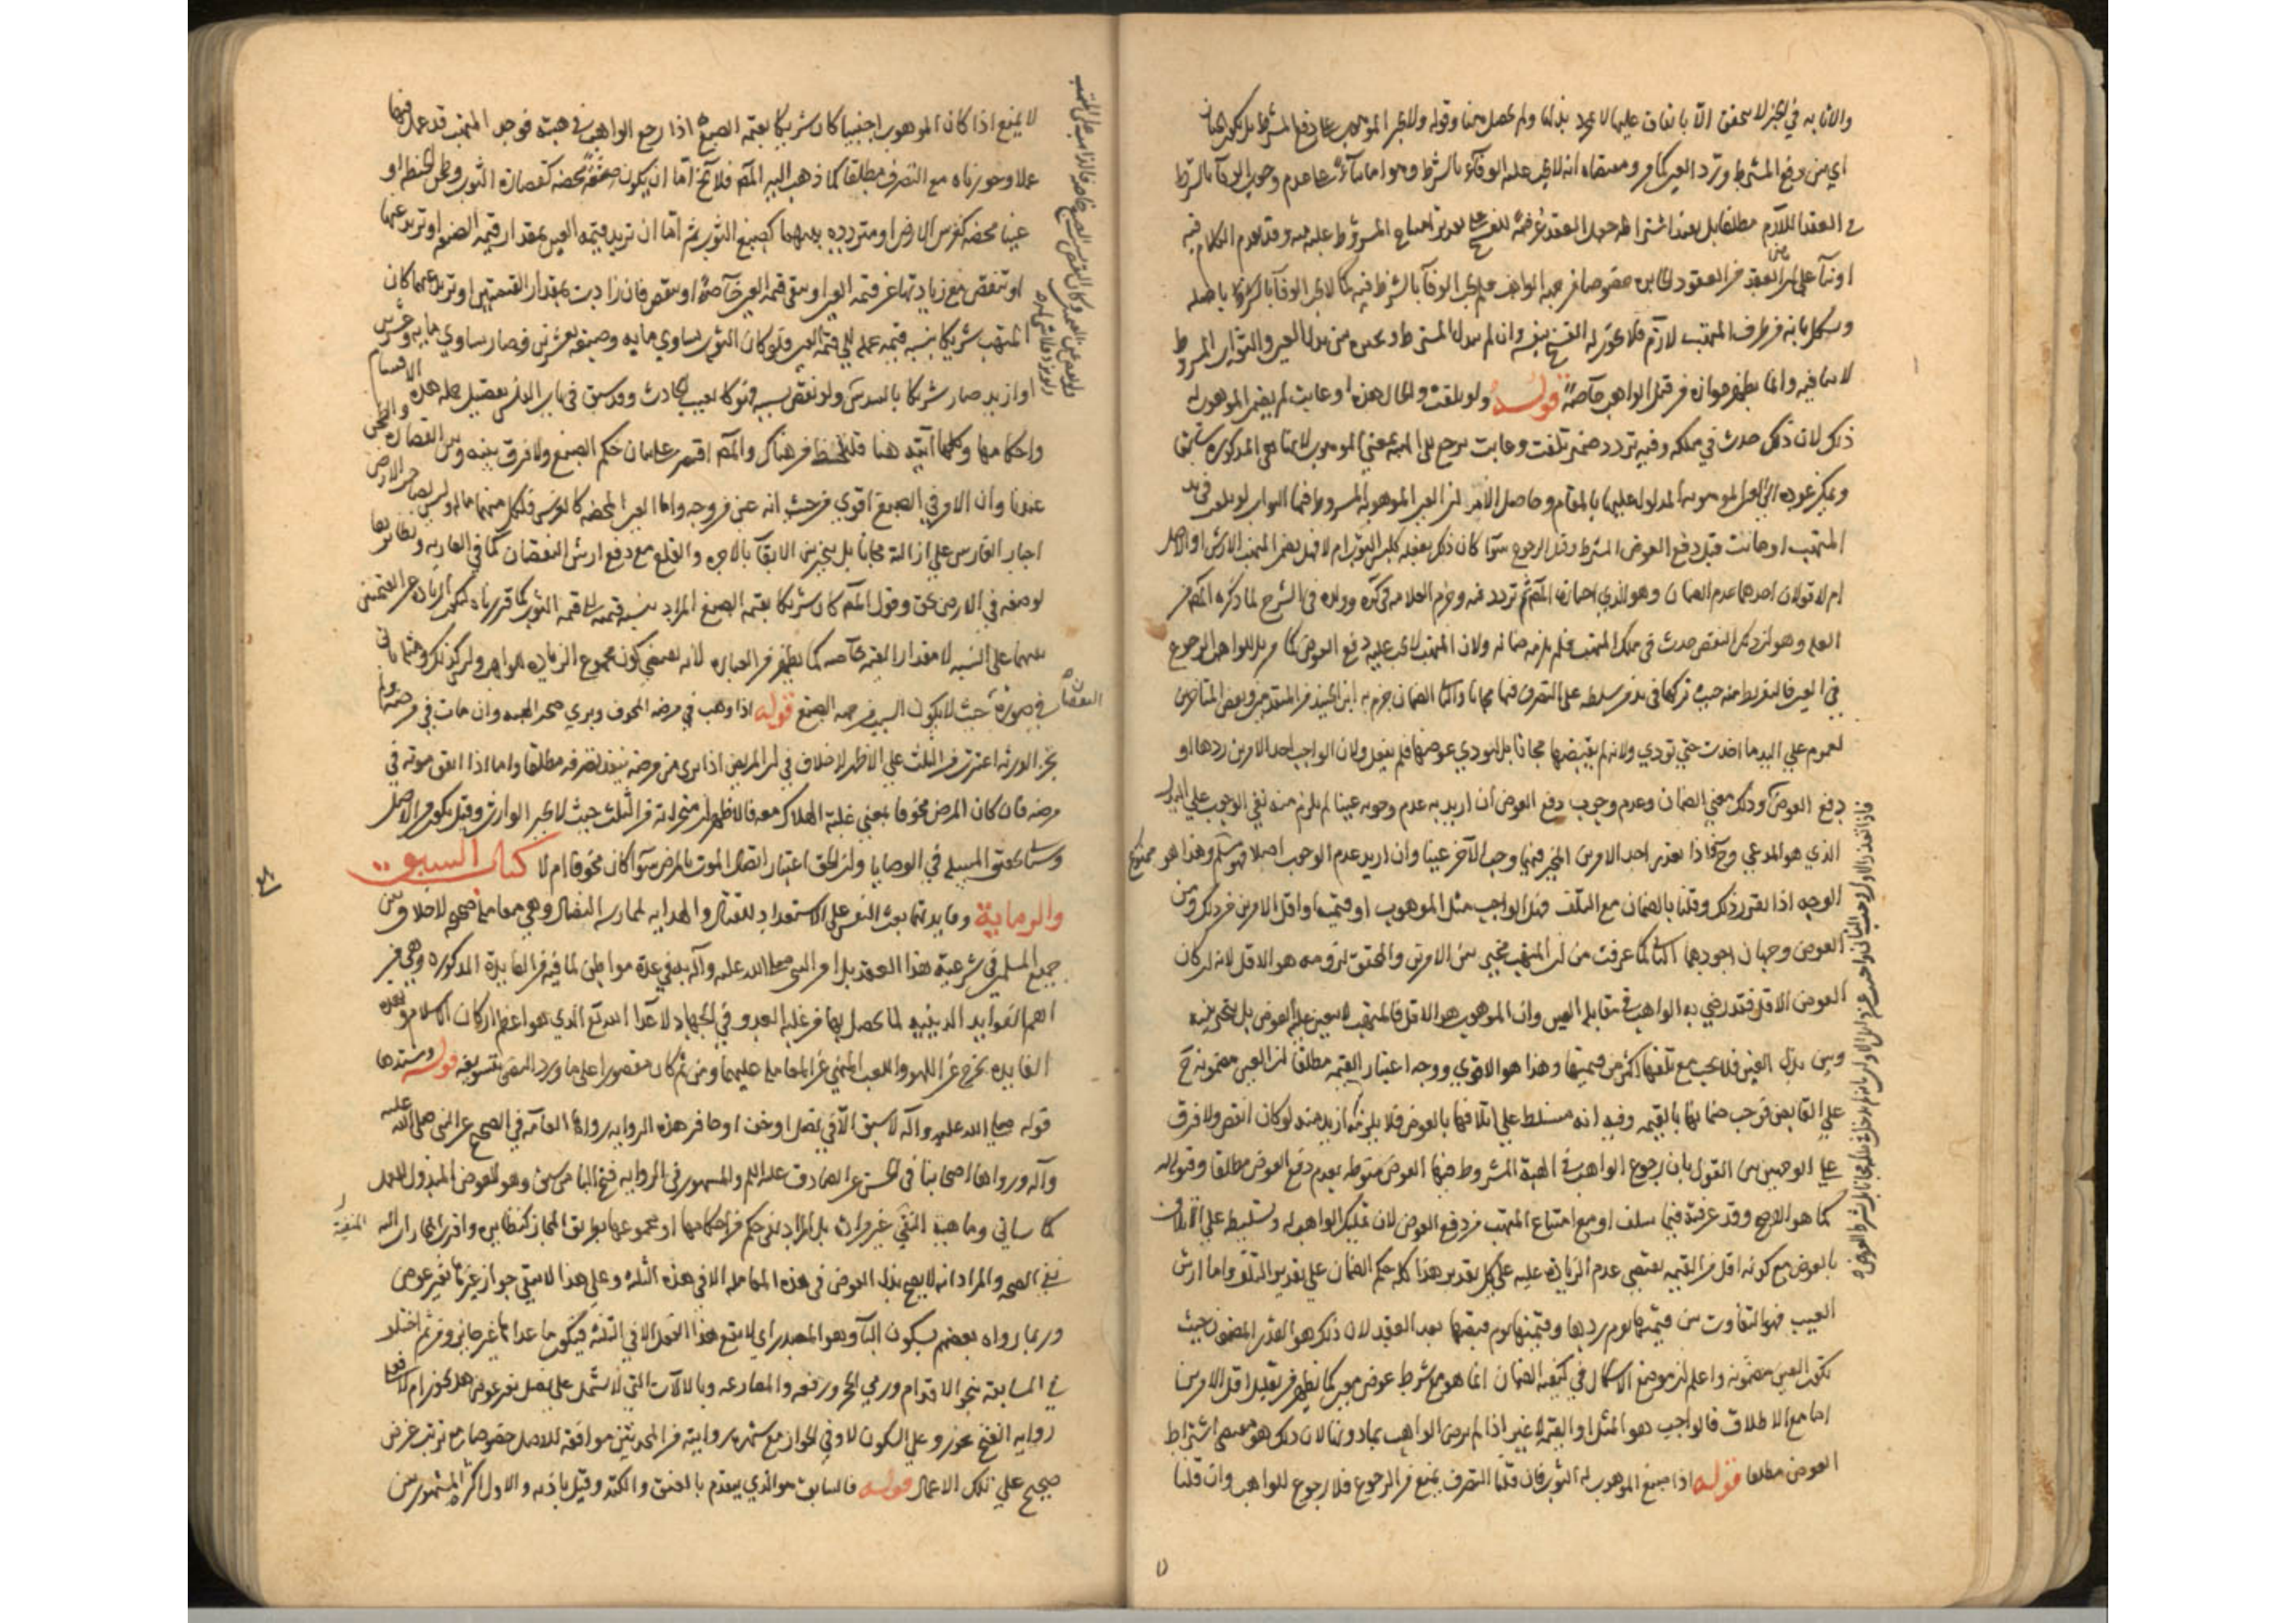 اي من دفع المشترط ورد العين كما مر ومقتضاه انه لا يجب عليه الوفاء بالشرط وهو اما بناء على عدم وجوب الوفاء بالشرط
في العقد اللازم مطلقا بل
لا ينافيه وانما يظهر جوازه من قبل الواهب خاصة قوله ولو تلفت والحال هذه او عابت لم يضمن الموهوب له
ذلك لان ذلك حدث في ملكه وفيه تردد ضمير تلفت وعابت يرجع الى الهبة بمعنى الموهوب لانها هي المذكورة سابقا
ويمكن عوده الى العين الموهوبة المدلول عليها بالمقام وحاصل الامر ان العين الموهوبة المشروط فيها الثواب لو تلفت في يد
المتهب او عابت قبل دفع العوض المشترط وقبل الرجوع سوا كان ذلك بفعله كلبس الثوب ام لا فهل يضمن المتهب الارش او الاصل
ام لا قولان احدهما عدم الضمان وهو الذي اختاره المصنف ثم تردد فيه وجزم العلامة في كره وولده في الشرح لما ذكره المصنف من
العلة وهو ان ذلك النقص حدث في ملك المتهب فلم يلزمه ضمانه ولان المتهب لا يجب عليه دفع العوض كما مر بل للواهب الرجوع
في العين فالتفريط منه حيث تركها في يد من سلطه على التصرف فيها مجانا والثاني الضمان جزم به ابن الجنيد من المتقدمين وبعض المتاخرين
لعموم على اليد ما اخذت حتى تودي ولانه لم يقبضها مجانا بل ليودي عوضها فلم يفعل ولان الواجب احد الامرين ردها او
دفع العوض وذلك معنى الضمان وعدم وجوب دفع العوض ان اريد به عدم وجوبه عينا لم يلزم منه نفي الوجوب على البدل
الذي هو المدعي وح فاذا تعذر احد الامرين المخير فيهما وجب الآخر عينا وان اريد عدم الوجوب اصلا فهو وهذا هو ممنوع
الوجه اذا تقرر ذلك وقلنا بالضمان مع التلف فهل الواجب مثل الموهوب او قيمته او اقل الامرين من ذلك ومن
العوض وجهان اجودهما الثاني لما عرفت من ان المتهب مخير بين الامرين والمحقق لزومه هو الاقل لانه ان كان
العوض الاقل فقد رضي به الواهب في مقابلة العين وان الموهوب هو الاقل فالمتهب لا يتعين عليه العوض بل يتخير بينه
وبين بذل العين فلا يجب مع تلفها اكثر من قيمتها وهذا هو الاقوى ووجه اعتبار القيمة مطلقا ان العين مضمونة ح
على القابض فوجب ضمانها بالقيمة وفيه انه مسلط على اتلافها بالعوض فلا يلزمه ازيد منه لو كان انقص ولا فرق
على الوجهين بين القول بان رجوع الواهب في الهبة المشروط فيها العوض متوط بعدم دفع العوض مطلقا وقبوله له
كما هو الاصح وقد عرفته فيما سلف او مع امتناع المتهب من دفع العوض لان تمليك الواهب له وتسليطه على الاتلاف
بالعوض مع كونه اقل من القيمة يقتضي عدم الزيادة عليه على كل تقدير هذا كله حكم الضمان على تقدير التلف واما ارش
العيب فهو التفاوت بين قيمتها يوم ردها وقيمتها يوم قبضها بعد العقد لان ذلك هو القدر المضمون حيث
تكون العين مضمونة واعلم ان موضع الاشكال في كيفية الضمان انما هو مع شرط عوض معين كما يظهر من تعليل اقل الامرين
اما مع الاطلاق فالواجب هو المثل او القيمة لا غير اذا لم يرض الواهب بما دونها لان ذلك هو مقتضى اشتراط
العوض مطلقا قوله اذا صبغ الموهوب له الثوب فان قلنا التصرف يمنع من الرجوع فلا رجوع للواهب وان قلنا
لا يمنع اذا كان الموهوب اجنبيا كان شريكا بقيمة الصبغ اذا رجع الواهب في هبته فوجد المتهب قد عمل فيها
عملا وجوزناه مع التصرف مطلقا كما ذهب اليه المصنف فلا يخ اما ان يكون صفة محضة كقصارة الثوب وطحن الحنطة او
عينا محضة كغرس الارض او مترددة بينهما كصبغ الثوب ثم اما ان تزيد قيمة العين بمقدار قيمة الصنعة او تزيد عنها
او تنقص مع زيادتها عن قيمة العين او يبقى قيمة العين خاصة او ينقص فان زادت بمقدار القيمتين او تزيد عنهما كان
المتهب شريكا بنسبة قيمة عمله الى قيمة العين فلو كان الثوب يساوي مايه وصبغه بعشرين فصار يساوي مايه وعشرين
او ازيد صار شريكا بالسدس ولو نقص بسببه فهو كالعيب الحادث وقد سبق في باب الفلس تفصيل جملة هذه الاقسام
واحكامها وكلها آتية هنا فلتلحظ من هناك والمصنف اقتصر على بيان حكم الصبغ ولا فرق بينه وبين القصارة والطحن
عندنا وان الامر في الصبغ اقوى من حيث انه عين من وجه واما العين المحضة كالغرس فلكل منهما ماله وليس لصاحب الارض
اجبار الغارس على ازالته مجانا بل يتخير بين الابقاء بالاجرة والقلع مع دفع ارش النقصان كما في العارية ونظايرها
لوضعه في الارض بحق وقول المصنف كان شريكا بقيمة الصبغ المراد بنسبة قيمته الى قيمة الثوب كما قررناه لتكون الزيادة عن القيمتين
بينهما على النسبة لا مقدار القيمة خاصة كما يظهر من العبارة لانه يقتضي كون مجموع الزيادة للواهب وليس كذلك
في صورة حيث لا يكون السبب من جهة الصبغ قوله اذا وهب في مرضه المخوف وبري صحت الهبة وان مات في مرضه ولم
يجز الورثة اعتبرت من الثلث على الاظهر لا خلاف في ان المريض اذا برئ من مرضه ينفذ تصرفه مطلقا واما اذا اتفق موته في
مرضه فان كان المرض مخوفا بمعنى غلبة الهلاك معه فالاظهر ان منجزاته من الثلث حيث لا يجيز الوارث وقيل يكون من الاصل
وسياتي تحقيق المسئلة في الوصايا وان الحق اعتبار اتصال الموت بالمرض سوا كان مخوفا ام لا كتاب السبق
والرماية وفايدتها بعث النفس على الاستعداد للقتال والهداية لممارسة النضال وهي معاملة صحيحة لا خلاف بين
جميع المسلمين في شرعية هذا العقد بل امر النبي صلى الله عليه وآله به في عدة مواطن لما فيه من الفايدة المذكورة وهي من
اهم الفوايد الدينية لما يحصل بها من غلبة العدو في الجهاد لاعداء الله تع الذي هو اعظم اركان الاسلام وبهذه
الفايدة يخرج عن اللهو واللعب المنهي عن المعاملة عليهما ومن ثم كان مقصورا على ما ورد النص بتسويغه قوله وسندها
قوله صلى الله عليه وآله لا سبق الا في نصل او خف او حافر هذه الرواية رواها العامة في الصحيح عن النبي صلى الله عليه
وآله ورواها اصحابنا في الحسن عن الصادق عليه السلم والمشهور في الرواية فتح الباء من سبق وهو العوض المبذول للعمل
كما سياتي وماهية النفي غير مرادة بل المراد نفي حكم من احكامها او مجموعها بطريق المجاز كنظايره واقرب المجازات اليه
نفي الصحة والمراد انه لا يصح بذل العوض في هذه المعاملة الا في هذه الثلثة وعلى هذا لا ينفي جواز غيرها بغير عوض
وربما رواه بعضهم بسكون الباء وهو المصدر اي لا يقع هذا الفعل الا في الثلثة فيكون ما عداها غير جايز ومن ثم اختلف
في المسابقة بنحو الاقدام ورمي الحجر ورفعه والمصارعة وبالالات التي لا تشتمل على نصل بغير عوض هل يجوز ام لا فعلى
رواية الفتح يجوز وعلى السكون لا وفي الجواز مع شهرة روايته من المحدثين موافقة للاصل خصوصا مع ترتب غرض
صحيح على تلك الاعمال قوله فالسابق هو الذي يتقدم بالعنق والكتد وقيل باذنه والاول اكثر المشهور بين